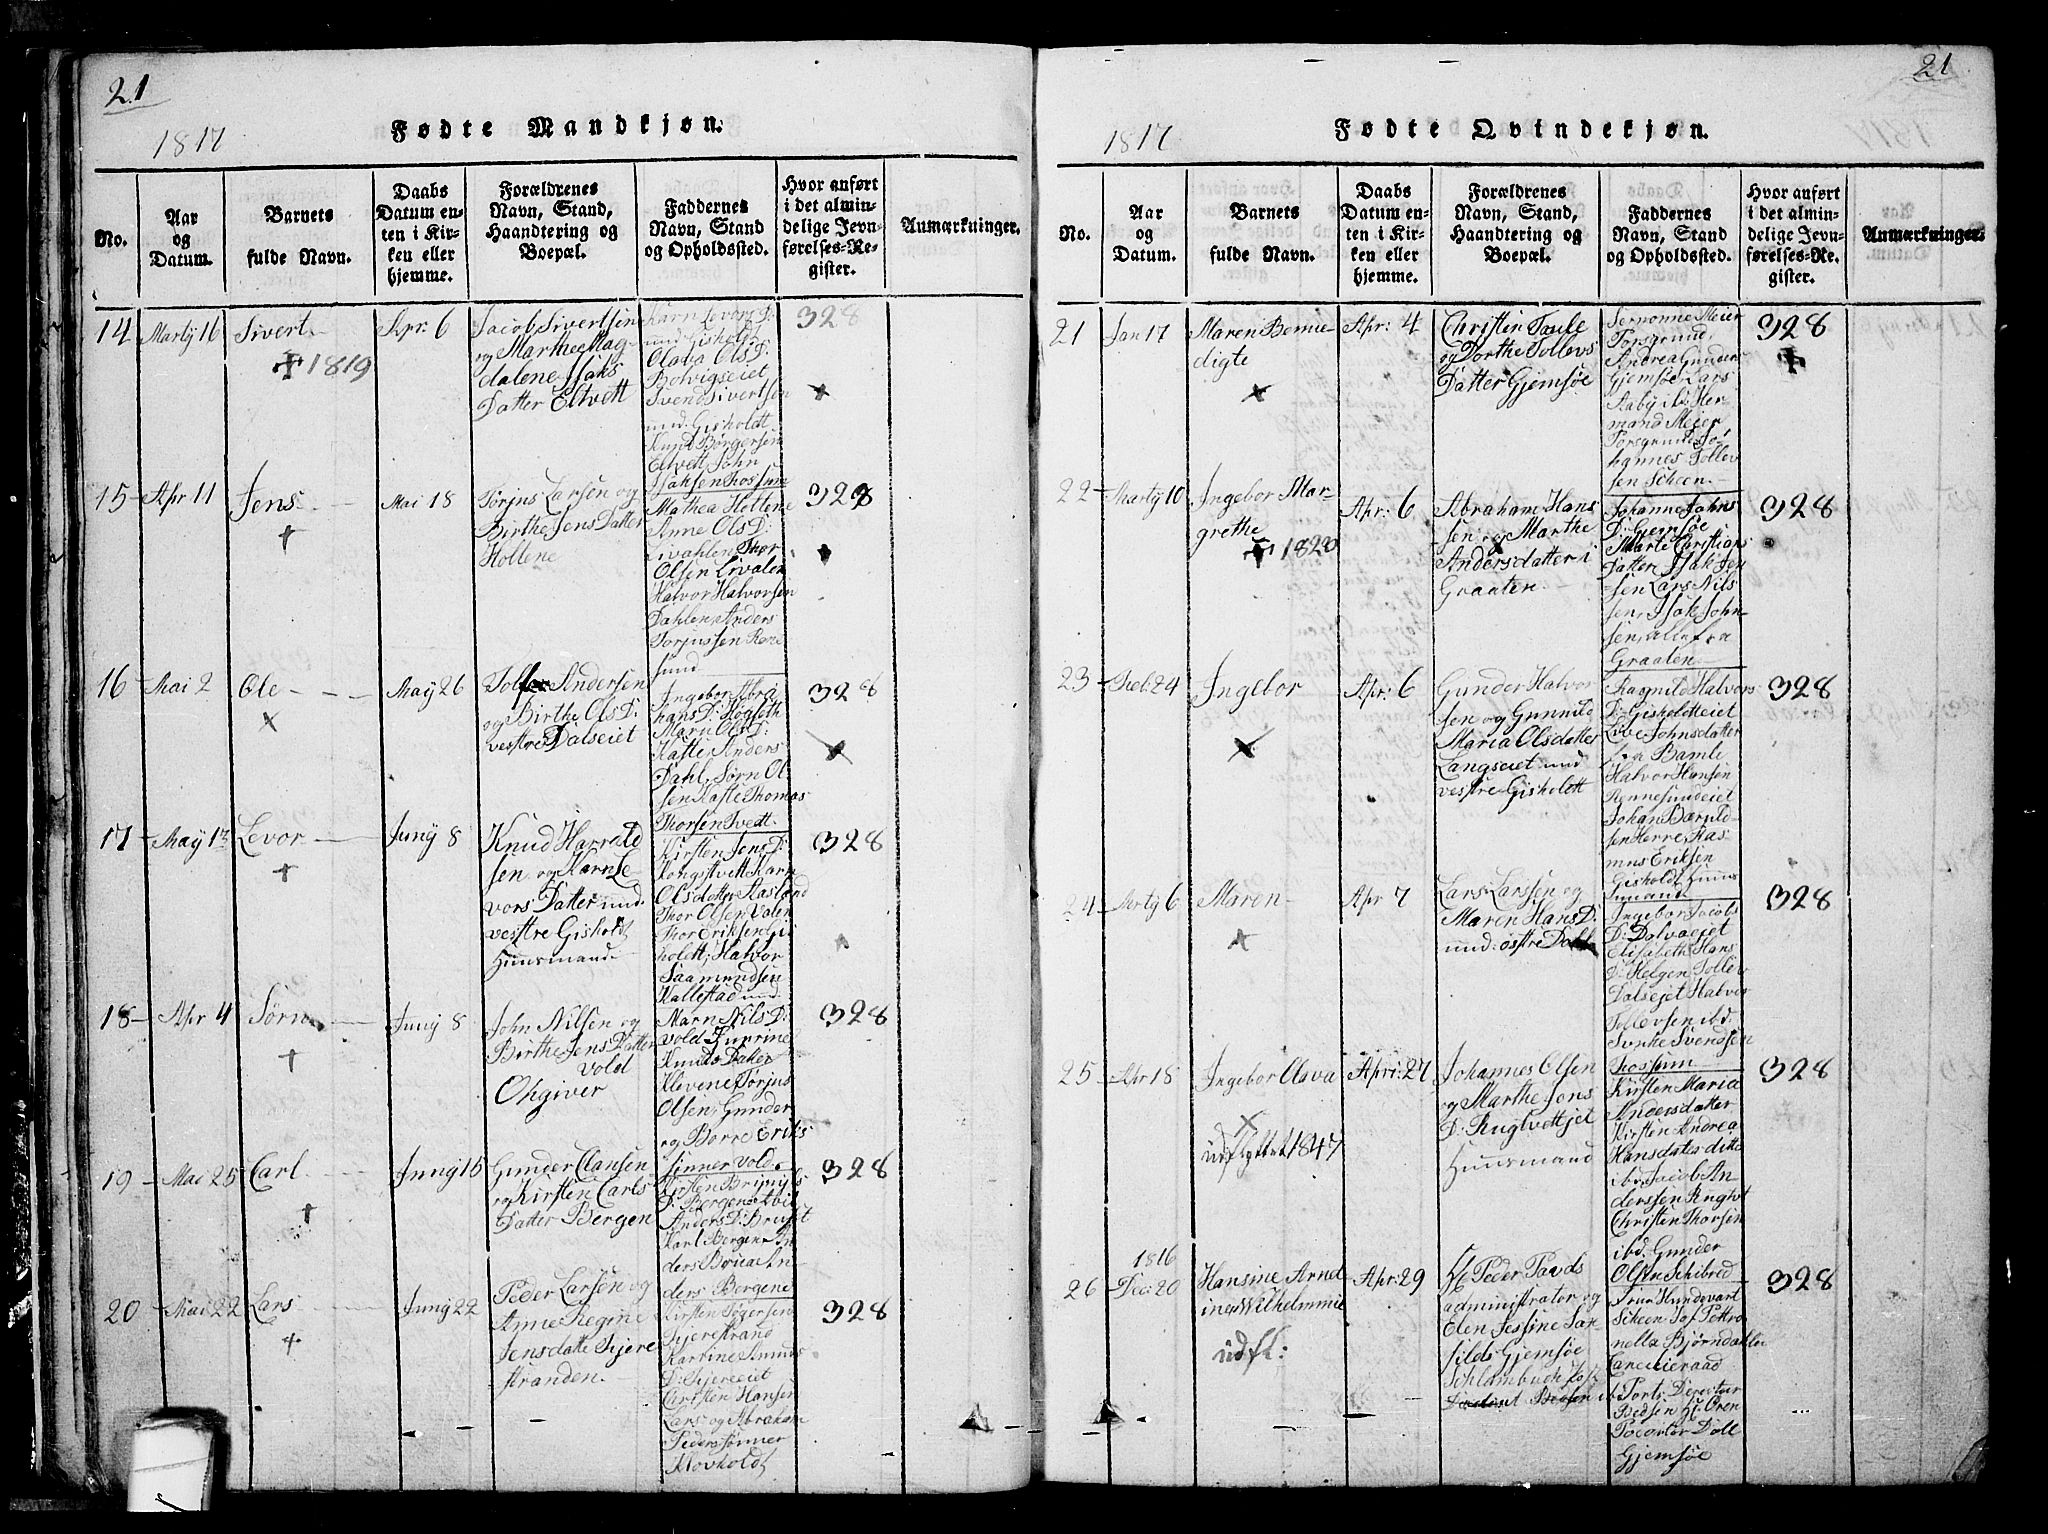 21
1817
Fødte Mandkjøn.
No.
Aar
og
Datum.
Barnets
fulde Navn.
Daabs
Datum en-
ten i Kir-
ken eller
hjemme.
Forældrenes
Navn, Stand,
Haandtering og
Boepæl.
Faddernes
Navn, Stand
og Opholdssted.
Hvor anført
i det almin-
delige Jevn-
førelses-Re-
gister.
Anmærkninger.
14
Martÿ 16
Sivert
+ 1819
Apr: 6
Jacob Sivertsen
og Marthe Mag-
dalene Isaks
Datter Eltvett
Karn Levors D:
und Gisholt
Olava Ols D:
Bolvigseiet
Svend Sivertsen
und. Gisholdt
Knud Børgersen
Eltvett John
Isaksen Fossum
328
15
Apr 11
Jens
Mai 18
Torjus Larsen og
Birthe Jens Datter
Holtene
Mathea Holtene
Anne Ols D:
Livahlen Thor
Olsen Livalen
Halvor Halvorsen
Dahlen, Anders
Torjussen Røne
sund
328
16
Mai 2
Ole
May 26
Andersen
og Birthe Ols D:
vestre Dalseiet
Ingebor Abra
hans D:
Marn Ols D:
Kaste Anders
Dahl, Sørn Ol-
sen Kaste Thomas
Thorsen Tvedt.
328
17
May 13
Levor
Junÿ 8
Knud Harrald
sen og Karn Le-
vors Datter und.
vestre Gisholt
Huusmand
Kirsten Jens D:
Kongstvett Karn
Olsdatter Aasland
Thor Olsen Valen
Thor Eriksen Gis
holdt, Halvor
Saamundsen
Kallestad und
328
18
Apr 4
Sørn
Junÿ 8
John Nilsen og
Birthe Jens Datter
Vold
Opgiver
Marn Nils D:
Vold
Knuds Datter
Klevene, Torjus
Olsen, Gunder
og Børre Eriks
sønner Vold
328
19
Mai 25
Carl
Jung 15
Gunder Clausen
og Kirsten Carls
Datter Bergen
D: Bergene
Anders D:
Karl Bergene
ders
ders Bergene
328
20
Mai 22
Lars
Jung 22
Peder Larsen og
Anne Regine
Jensdatter
stranden.
Kirsten
Kartine
Carsten Hansen
Lars og Abraham
Peders sønner
Klovholdt
328
21
1817
Fødte Qvindekjøn.
No.
Aar
og
Datum.
Barnets
fulde Navn.
Daabs
Datum en-
ten i Kir-
ken eller
hjemme.
Forældrenes
Navn, Stand,
Haandtering og
Boepæl.
Faddernes
Navn, Stand
og Opholdssted.
Hvor anført
i det almin-
delige Jevn-
førelses-Re-
gister.
Anmærkninger.
21
Jan 17
Maren Benne
digte
Apr: 4
Christen
og Dorthe Tollevs
Datter Gjemsøe
Meier
Porsgrund
Andrea Gunders
Gjemsøe, Lars
Aaby ibd. Her
mand Meier
Porsgrund Jo-
hannes Tollev
sen Scheen
328
22
Martÿ 10
Ingebor Mar-
grethe
+ 1820
Apr: 6
Abraham Hans
sen og Marthe
Andersdatter i
Graaten
Johanne Johns
D: Gjemsøe
Marte Christians
Datter, Isak Jen
sen Lars Nils
sen, Isak John-
sen, alle fra
Graaten
328
23
Feb: 24
Ingebor
Apr: 6
Gunder Halvor
sen og Gunnild
Maria Olsdatter
Langseiet und
vestre Gisholdt
Ragnild Halvors
D: Gisholtteiet
Live Johnsdatter
fra Bamle
Halvor Hansen
Rønnesundeiet
Johan Bæruld-
sen Herre, Ras
mus Eriksen
Gisholdt Huus
mand
328
24
Martÿ 6
Maren
Apr 7
Lars Larsen og
Maren Hans D:
und: østre
Ingebor Jacobs
D: Dolvaeiet
Elisabeth Hans
D: Helgen Tollev
Dalseiet Halvor
Tollevsen ibd:
Svenke Svendsen
Fossum
328
25
Apr 18
Ingebor Olava
udflyttet 1847
Apri: 27
Johannes Olsen
og Marthe Jens
D: Rugtvettejet
Huusmand
Kirsten Maria
Andersdatter
Kirsten Andrea
Hansdatter ditto
ibd: Jacob An
derssen Rugtvt
Christen Thorsen
ibd. Gunder
Olsen Schibred
328
1816
26
Dec: 20
Hansine Arnd
ine Wilhelmine
udfl:
Apr: 29
Hr Peder Pauds
administrator og
Elen Jessine
Gjemsøe
Frue Hundevart
Scheen
nella Bjørndahlen
Cancelieraad
Ports Directeur
Bedsen Hr. Oren
Gjemsøe
328